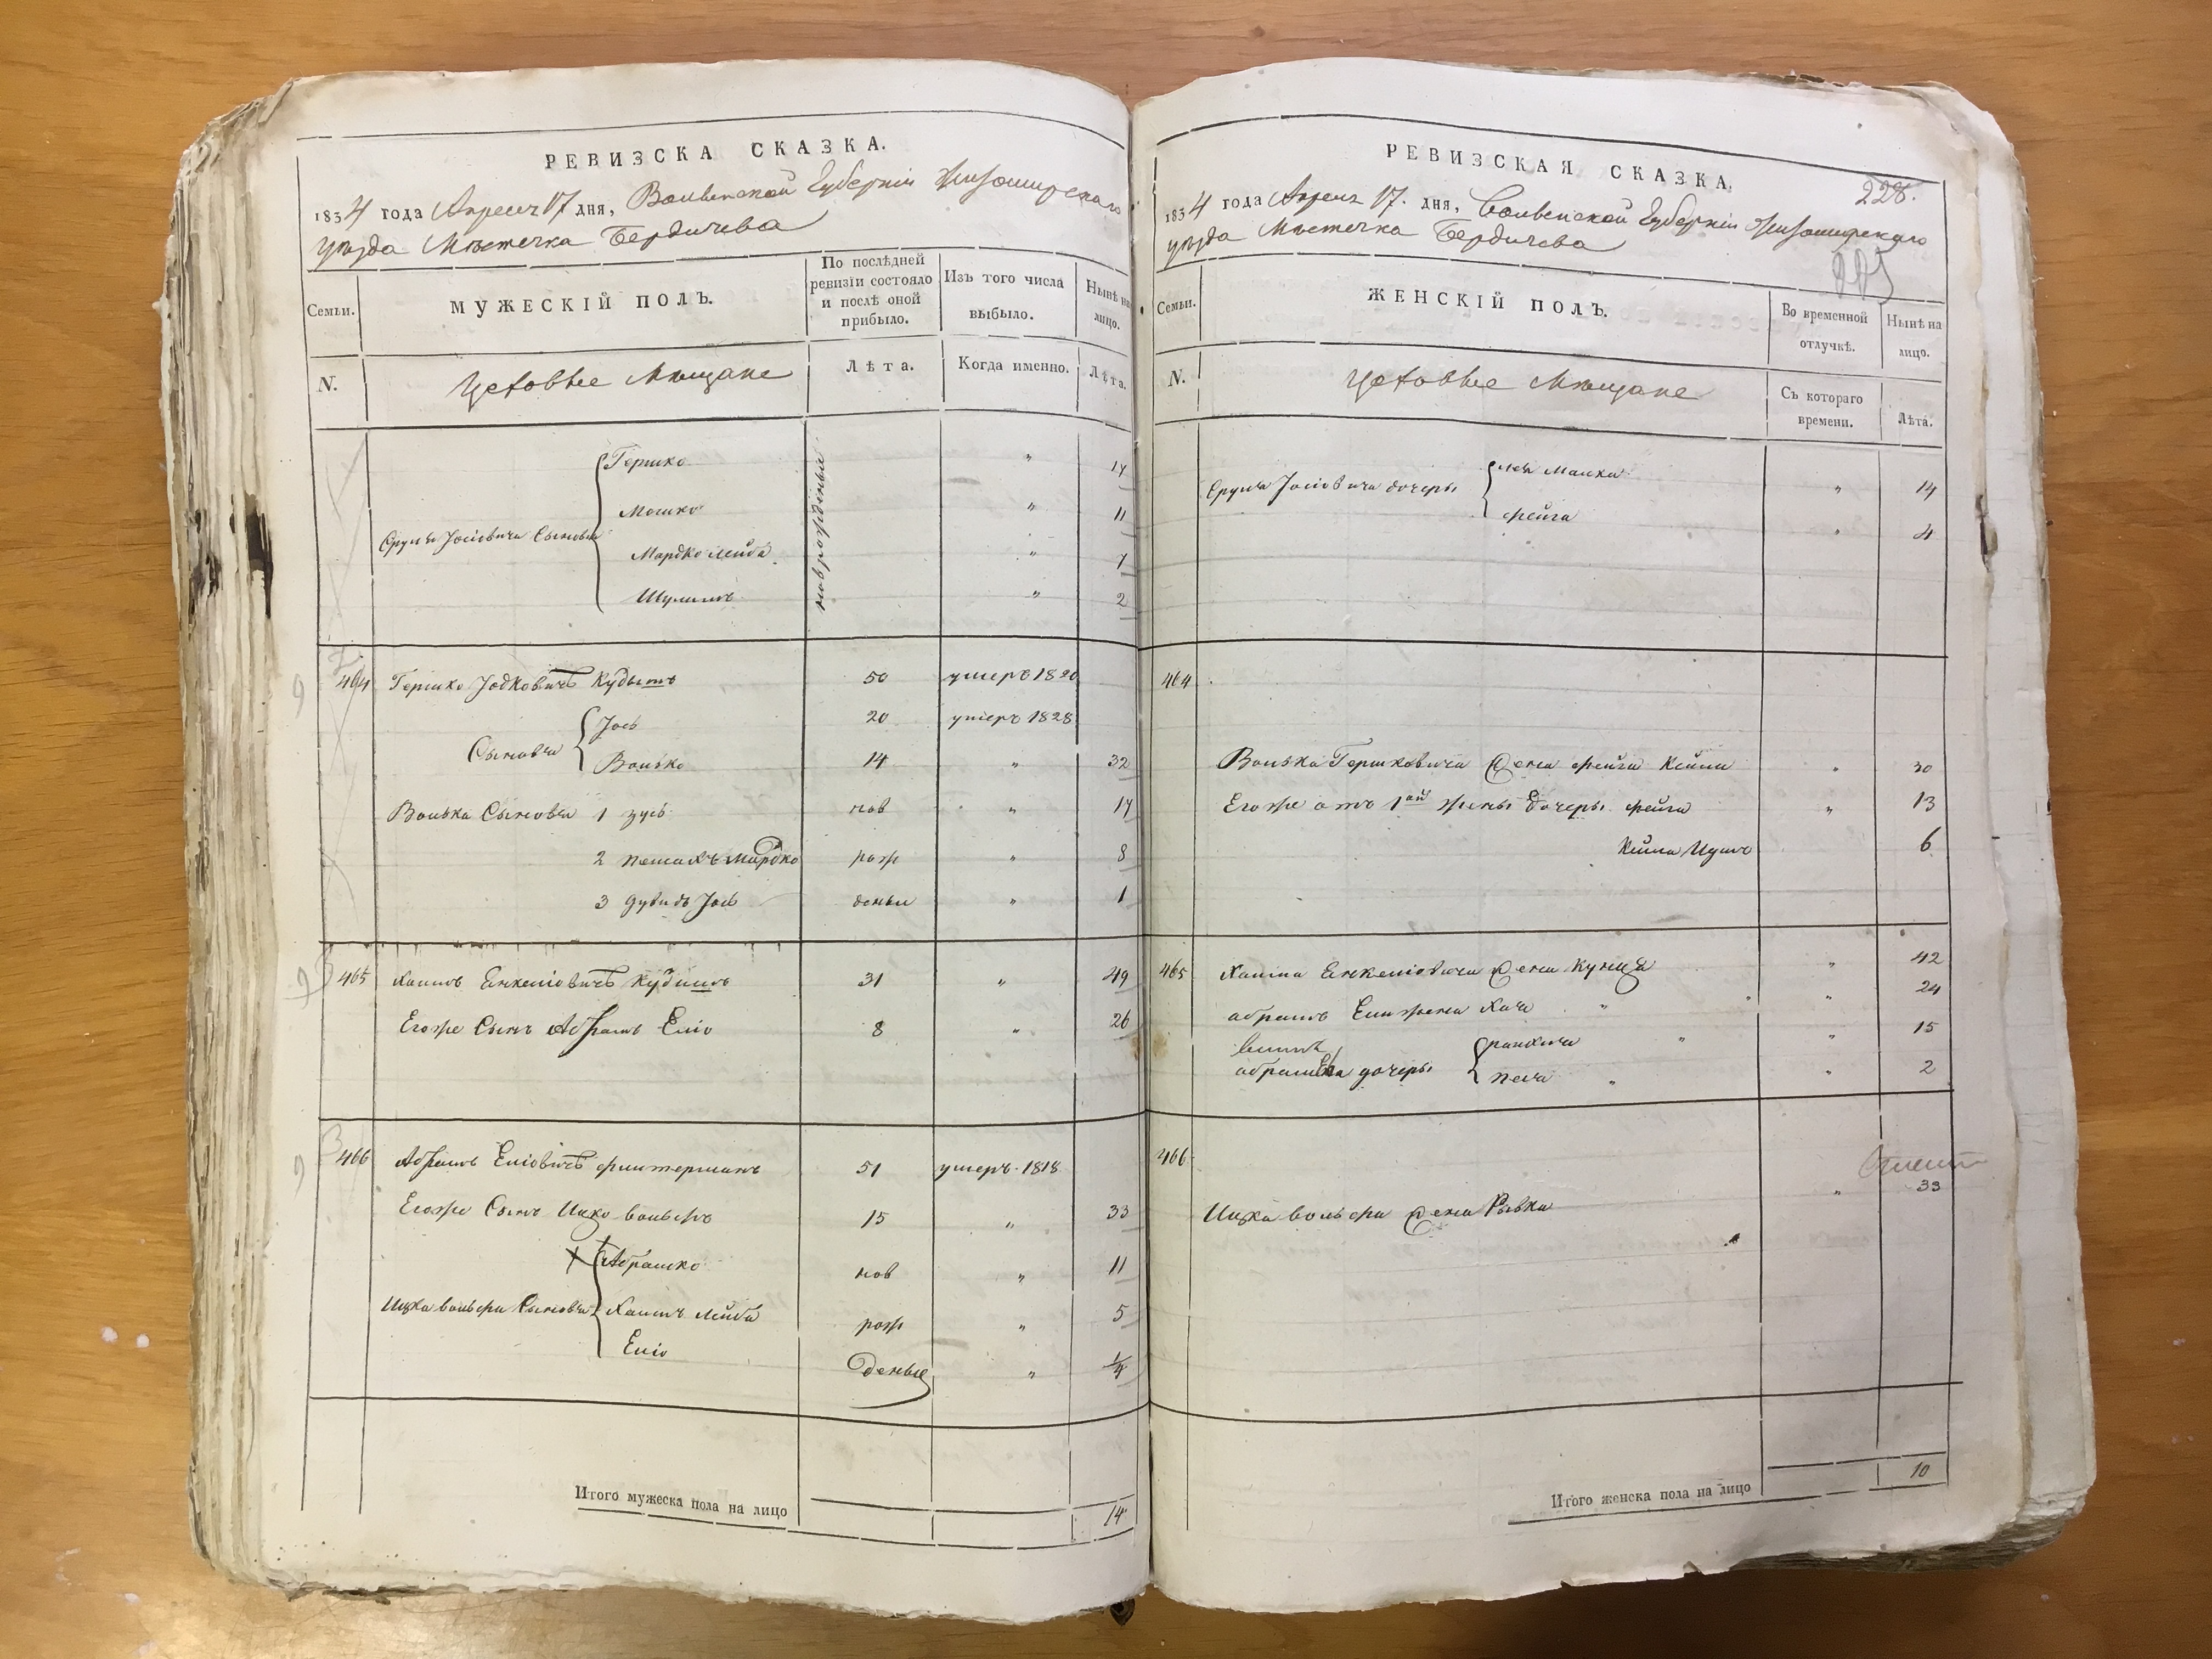 РЕВИЗСКА СКАЗКА.
1834 года Апреля 17 дня, Волынской Губернии Житомирского
уезда Местечка Бердичева
Семьи.
МУЖЕСКІЙ ПОЛЪ.
По послѣдней ревизіи состояло и послѣ оной прибыло.
Изъ того числа выбыло.
Нынѣ на лицо.
N.
Цеховые Мещане
Лѣта.
Когда именно.
Лѣта.
Сруля Іосіовича Сыновья
новорожденые
Гершко " 14
Мошко " 11
Мардко Лейба " 7
Шулимъ " 2
464 Гершко Іодковичъ Кудышъ 50 умеръ 1820
Сыновья
Іось 20 умеръ 1828
Волько 14 " 32
Волька Сыновья 1 Зусь нов " 14
2 Пейсахъ Мардко рож " 8
3 Дувидъ Іось деныи " 1
465 Хаимъ Енкеліовичъ Кудишъ 31 " 49
Егоже Сынъ Абрамъ Еліо 8 " 26
466 Абрамъ Еліовичъ Финтерманъ 51 умеръ 1818
Егоже Сынъ Ицко Вольфъ 15 " 33
Ицка Вольфа Сыновья
Абрашко нов " 11
Хаимъ Лейба рож " 5
Еліо деные " 1/4
Итого мужеска пола на лицо 14
РЕВИЗСКАЯ СКАЗКА.
228.
1834 года Апреля 17. дня, Волынской Губерніи Житомирского
уезда Местечка Бердичева
Семьи.
ЖЕНСКІЙ ПОЛЪ.
Во временной отлучкѣ.
Нынѣ на лицо.
N.
Цеховые Мещане
Съ котораго времени.
Лѣта.
Сруля Іосіовича дочеры
Лея Малка " 14
Фейга " 4
464
Волька Гершковича Жена Фейга Кейла " 30
Егоже отъ 1ой жены дочеры Фейга " 13
6
465 Хаима Енкеліовича Жена Кунца " 42
Абрамъ Елижена Хая " " 24
Абрама дочеры
" " 15
Песя " " 2
466
Ицка Вольфа Жена Рывка " 33
Итого женска пола на лицо 10